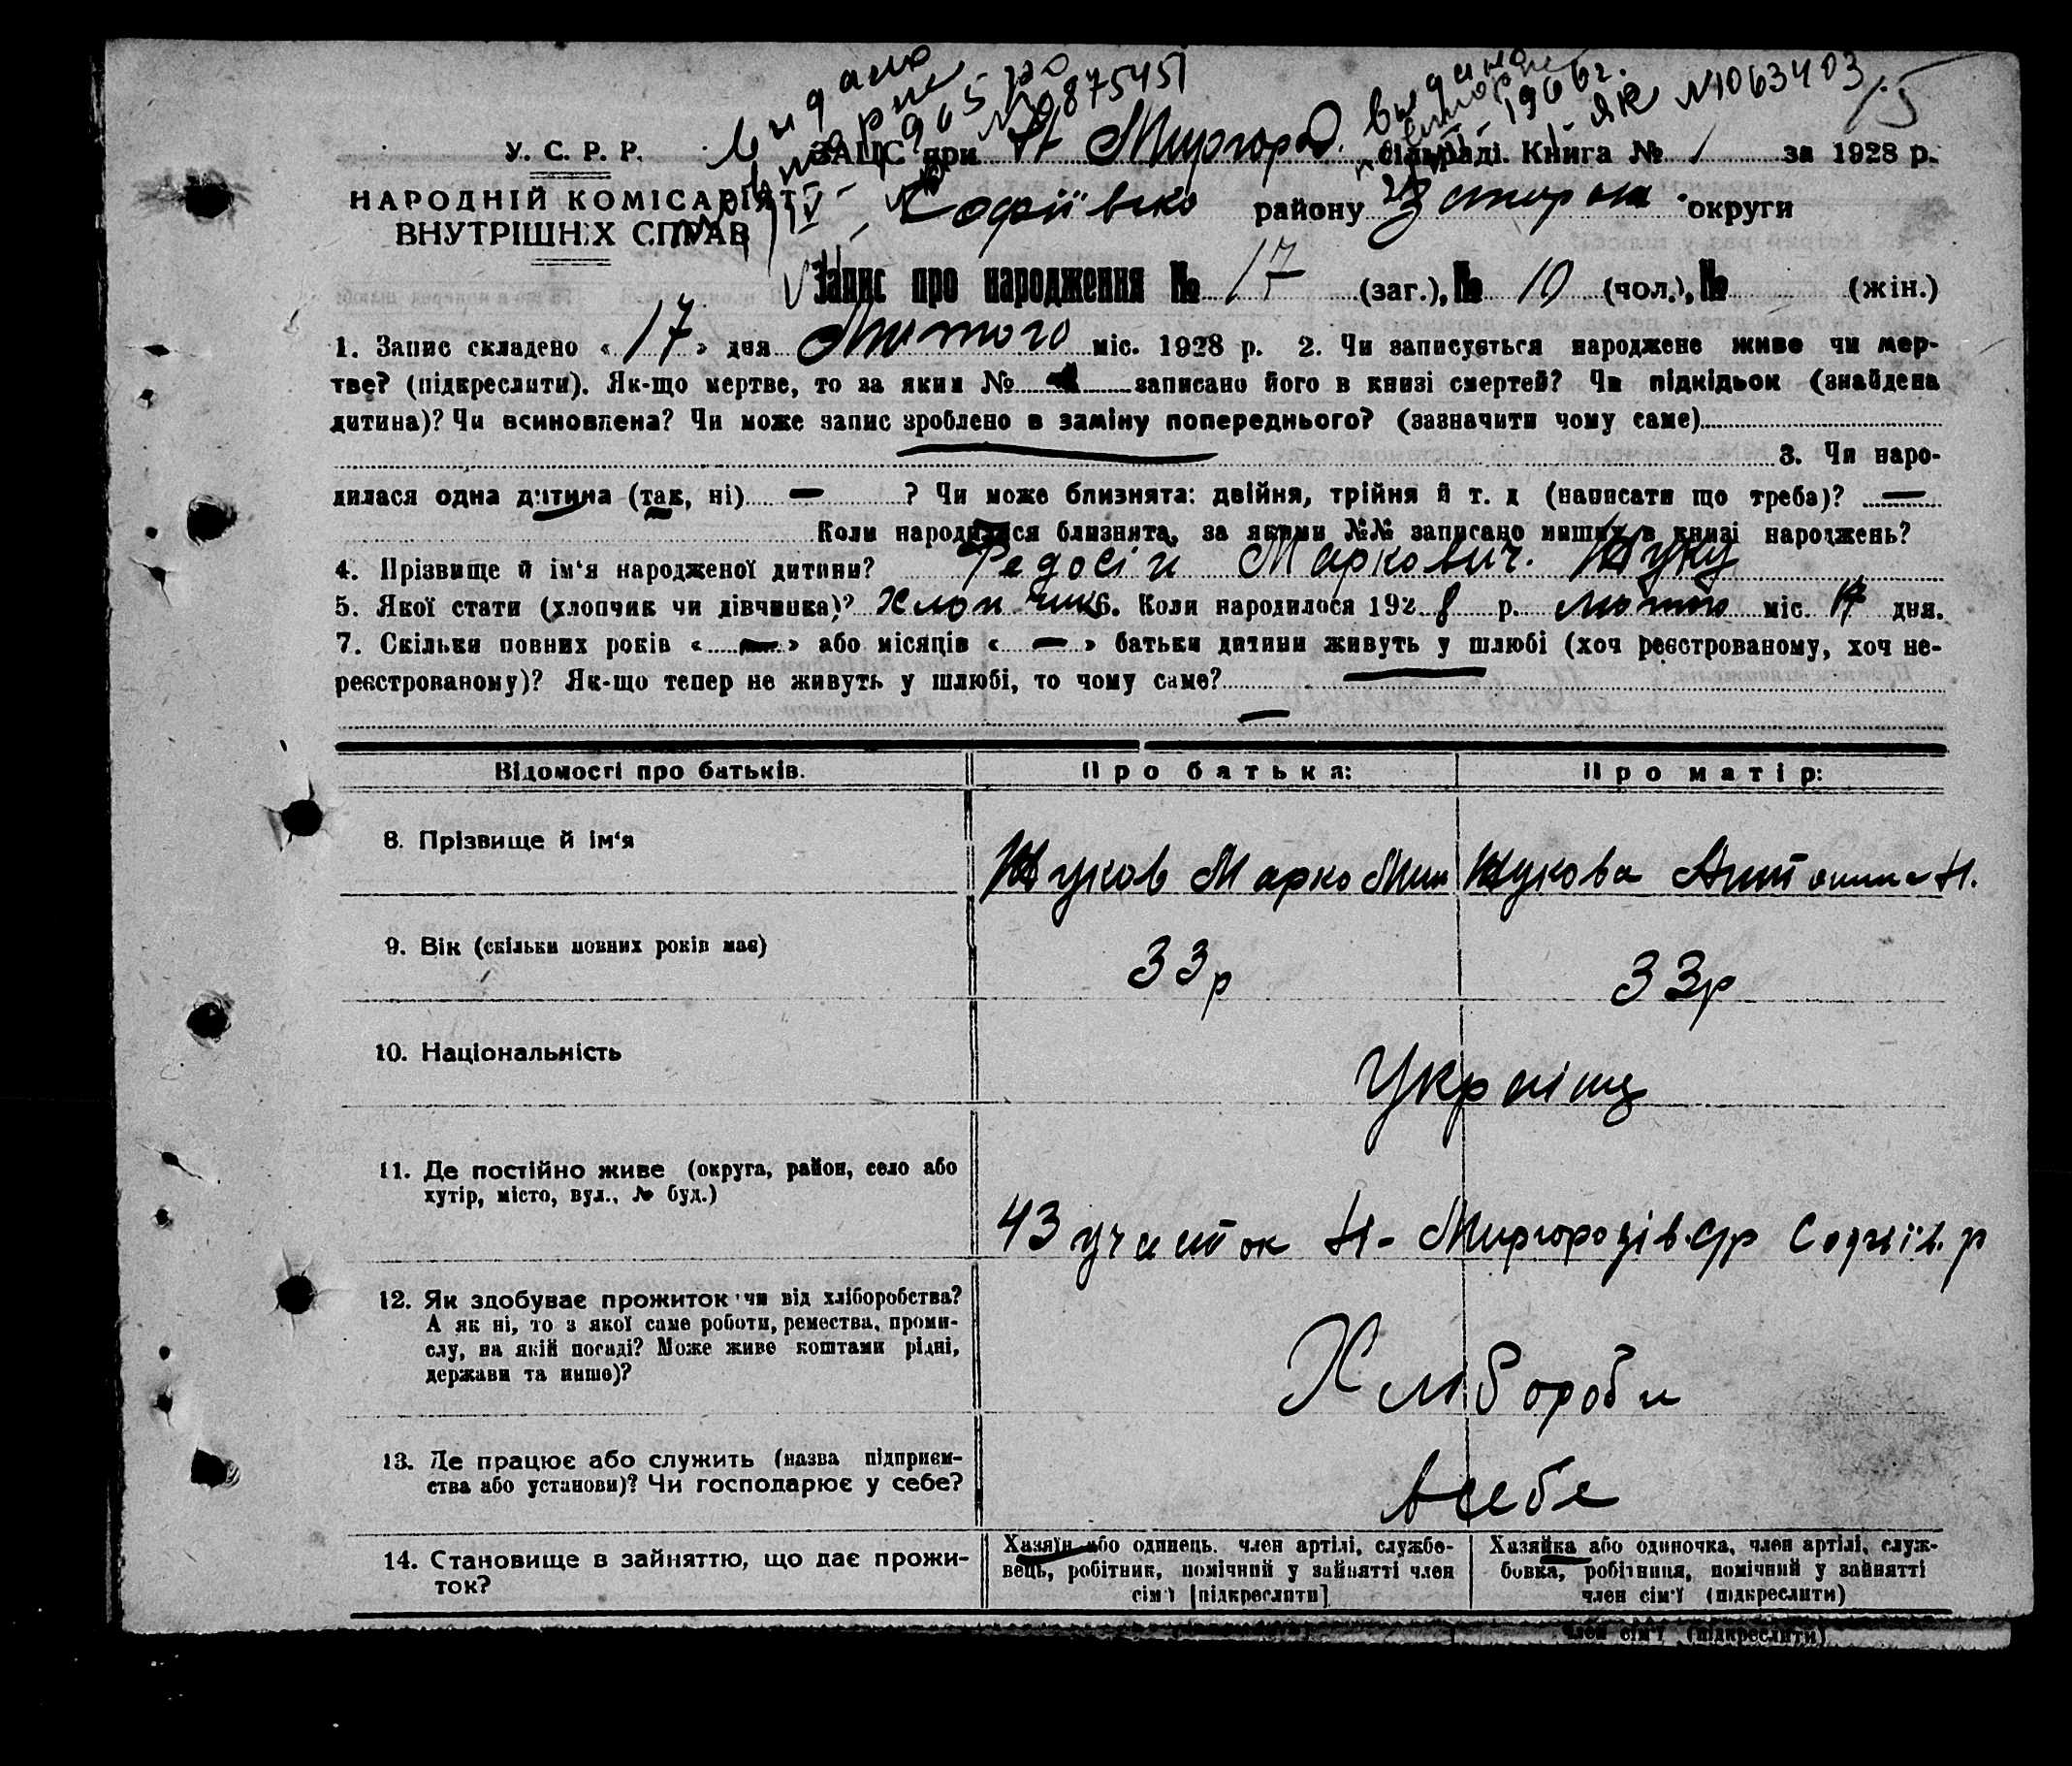 видано
вторне
1965 ро
№ 875451
выдано
повторне
1966 г.
ЯК №1063403
15
У. С. Р. Р.
ЗАЦС при Н Миргород. сільраді. Книга № 1 за 1928 р.
НАРОДНІЙ КОМІСАРІЯТ
ВНУТРІШНІХ СПРАВ
Софіївсько району Запорож округи
Запис про народження № 17 (заг.), № 10 (чол.), № (жін.)
1. Запис складено « 17 » дня Лютого міс. 1928 р. 2. Чи записується народжене живе чи мер-
тве? (підкреслити). Як-що мертве, то за яким № записано його в книзі смертей? Чи підкідьок (знайдена
дитина)? Чи всиновлена? Чи може запис зроблено в заміну попереднього? (зазначити чому саме)
3. Чи наро-
дилася одна дитина (так, ні) — ? Чи може близнята: двійня, трійня й т. д (написати що треба)? —
Коли народилися близнята, за якими №№ записано инших в книзі народжень?
4. Прізвище й ім'я народженої дитини? Федосій Маркович. Жуку
5. Якої стати (хлопчик чи дівчинка)? Хлопчик 6. Коли народилося 1928 р. лютого міс. 17 дня.
7. Скільки повних років « — » або місяців « — » батьки дитини живуть у шлюбі (хоч реєстрованому, хоч не-
реєстрованому)? Як-що тепер не живуть у шлюбі, то чому саме?
—
Відомості про батьків. Про батька: Про матір:
8. Прізвище й ім'я Жуков Марко Жукова Антонина Н.
9. Вік (скільки повних років має) 33 р 33 р
10. Національність Україці
11. Де постійно живе (округа, район, село або
хутір, місто, вул., № буд.)
43 участок Н-Миргородів.с/р Софіїв. р
12. Як здобуває прожиток чи від хліборобства?
А як ні, то з якої саме роботи, ремества, проми-
слу, на якій посаді? Може живе коштами рідні,
держави та инше)?
Хлібороби
13. Де працює або служить (назва підприєм-
ства або установи)? Чи господарює у себе?
в себе
14. Становище в зайняттю, що дає прожи-
ток?
Хазяїн або одинець. член артілі, службо-
вець, робітник, помічний у зайнятті член
сім'ї [підкреслити]
Хазяйка або одиночка, член артілі, служ-
бовка, робітниця, помічний у зайнятті
член сім'ї (підкреслити)
член сім'ї (підкреслити)